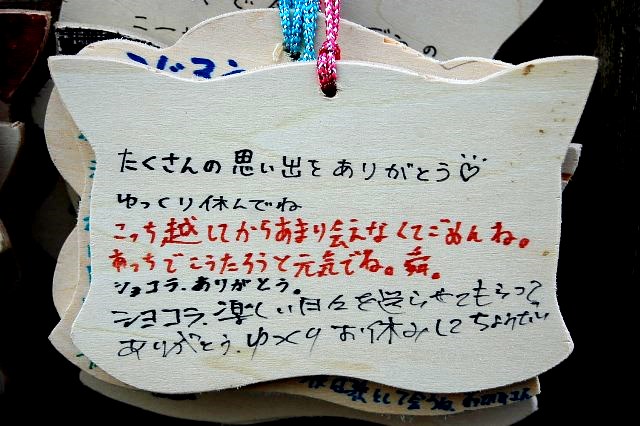 こじろう
たくさんの思い出をありがとう♡
ゆっくり休んでね
こっち越してからあまり会えなくてごめんね。
あっちでこうたろうと元気でね。舜。
ショコラ、ありがとう。
ショコラ、楽しい日々を送らせてもらって
ありがとう、ゆっくりお休みしてちょうだい